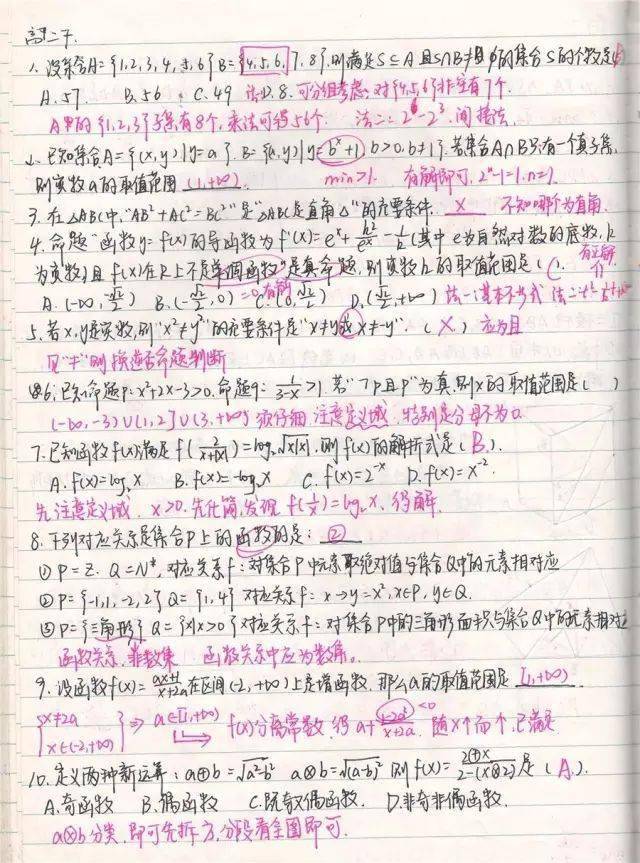 高二下.
1. 设集合A={1,2,3,4,5,6} B={4,5,6,7,8}.则满足S⊆A 且S∩B≠∅的集合S的个数是(B)
A.57 B.56 C.49 D.8. 法一:可分组考虑.对{4,5,6}非空有7个.
A中的{1,2,3}子集有8个,乘法可得56个. 法二:2⁶-2³.间接法.
2. 已知集合A={(x,y)|y=a}. B={(x,y)|y=bˣ+1,b>0,b≠1}.若集合A∩B只有一个真子集,
则实数a的取值范围 (1,+∞) min>1. 有解即可. 2ⁿ-1=1.n=1.
3. 在△ABC中,"AB²+AC²=BC²"是"△ABC是直角△"的充要条件. × 不知哪个为直角.
4. 命题"函数y=f(x)的导函数为f'(x)=eˣ+k²/eˣ-1/k(其中e为自然对数的底数,k
为实数)且f(x)在R上不是单调函数"是真命题,则实数k的取值范围是( C. 有正解
A.(-∞,√2/2) B.(-√2/2,0) C.(0,√2/2) D.(√2/2,+∞) 法一:基本不等式 法二:
=0有解
5. 若x,y是实数,则"x²≠y²"的充要条件是"x≠y或x≠-y". (×) 应为且
见"≠"则换逆否命题判断
6. 已知命题p:x²+2x-3>0.命题q: 1/(3-x)>1.若"¬q且p"为真.则x的取值范围是( )
(-∞,-3)∪(1,2]∪(3,+∞) 须仔细.注意定义域.特别是分母不为0.
7. 已知函数f(x)满足f(2/(x+|x|))=log₂√(x|x|).则f(x)的解析式是(B.).
A.f(x)=log₂x B.f(x)=-log₂x C.f(x)=2⁻ˣ D.f(x)=x⁻².
先注意定义域. x>0.先化简.发现f(1/x)=log₂x.得解.
8. 下列对应关系是集合P上的函数的是: ②
① P=Z. Q=N*,对应关系f:对集合P中元素取绝对值与集合Q中的元素相对应
② P={-1,1,-2,2} Q={1,4} 对应关系f:x→y=x²,x∈P,y∈Q.
③ P={三角形} Q={x|x>0}对应关系f:对集合P中的三角形面积与集合Q中的元素相对应
函数关系.非数集 函数关系中应为数集.
9. 设函数f(x)=(ax+1)/(x+2a)在区间(-2,+∞)上是增函数,那么a的取值范围是 [1,+∞)
{x≠2a
x∈(-2,+∞)} ⇒ a∈[1,+∞) f(x)分离常数.得a+(1-2a²)/(x+2a) <0 随x个而个.已满足
10. 定义两种新运算:a⊕b=√(a²-b²) a⊗b=√(a-b)² 则f(x)=(2⊕x)/(2-(x⊗2))是(A.).
A.奇函数 B.偶函数 C.既奇又偶函数. D.非奇非偶函数.
a⊗b分类.即可先拆方.分段看全图即可.